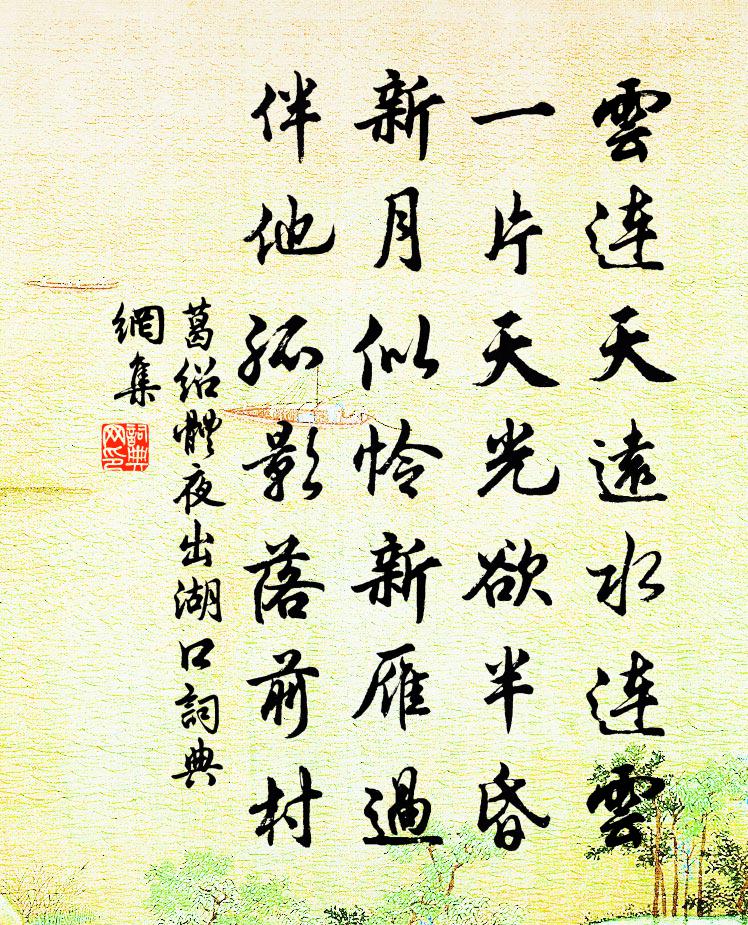 雲連天遠水連雲
一片天光欲半昏
新月似怜新雁過
伴他孤影落前村
葛绍體夜出湖口詞典
網集
詞典
网印